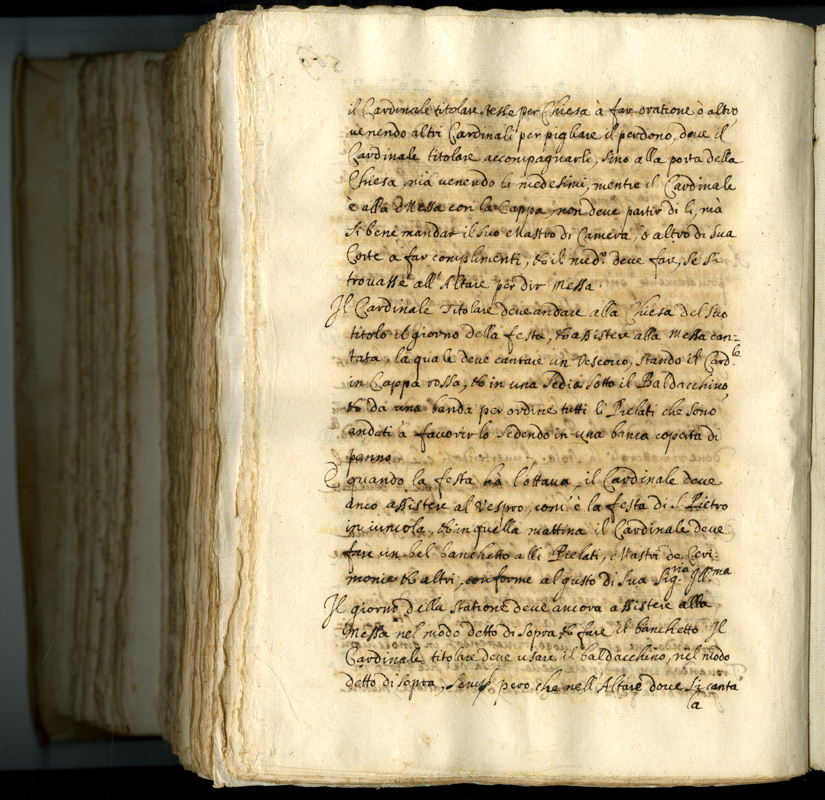 il Cardinale titolare, stesse per Chiesa à far oratione ò altro
venendo altri Cardinali per pigliare il perdono, deve il
Cardinale titolare accompagnarli, sino alla porta della
Chiesa, mà venendo li medesimi, mentre il Cardinale
è alla Messa con la Cappa, non deve partir di li, mà
si bene mandar il suo Mastro di Camera, ò altro di sua
Corte à far complimenti, et il med.º deve fare, se si
trovasse all'Altare per dir Messa.
Il Cardinale Titolare deve andare alla Chiesa del suo
titolo il giorno della festa, et assistere alla Messa can=
tata, la quale deve cantare un Vescovo, stando il Card.le
in Cappa rossa, et in una Sedia sotto il Baldacchino,
et da una banda per ordine tutti li Prelati che sono
andati à favorirlo sedendo in una banca coperta di
panno
E quando la festa hà l'ottava, il Cardinale deve
anco assistere al Vespro, com'è la festa di S. Pietro
in vincola, et in quella mattina il Cardinale deve
fare un bel banchetto alli Prelati, Mastri de Ceri-
monie et altri, conforme al gusto di Sua Sig.ria Ill.ma
Il giorno della statione deve ancora assistere alla
Messa nel modo detto di sopra, et fare il banchetto. Il
Cardinale titolare deve usare il baldacchino, nel modo
detto di sopra, però che nell'Altare dove si canta
la